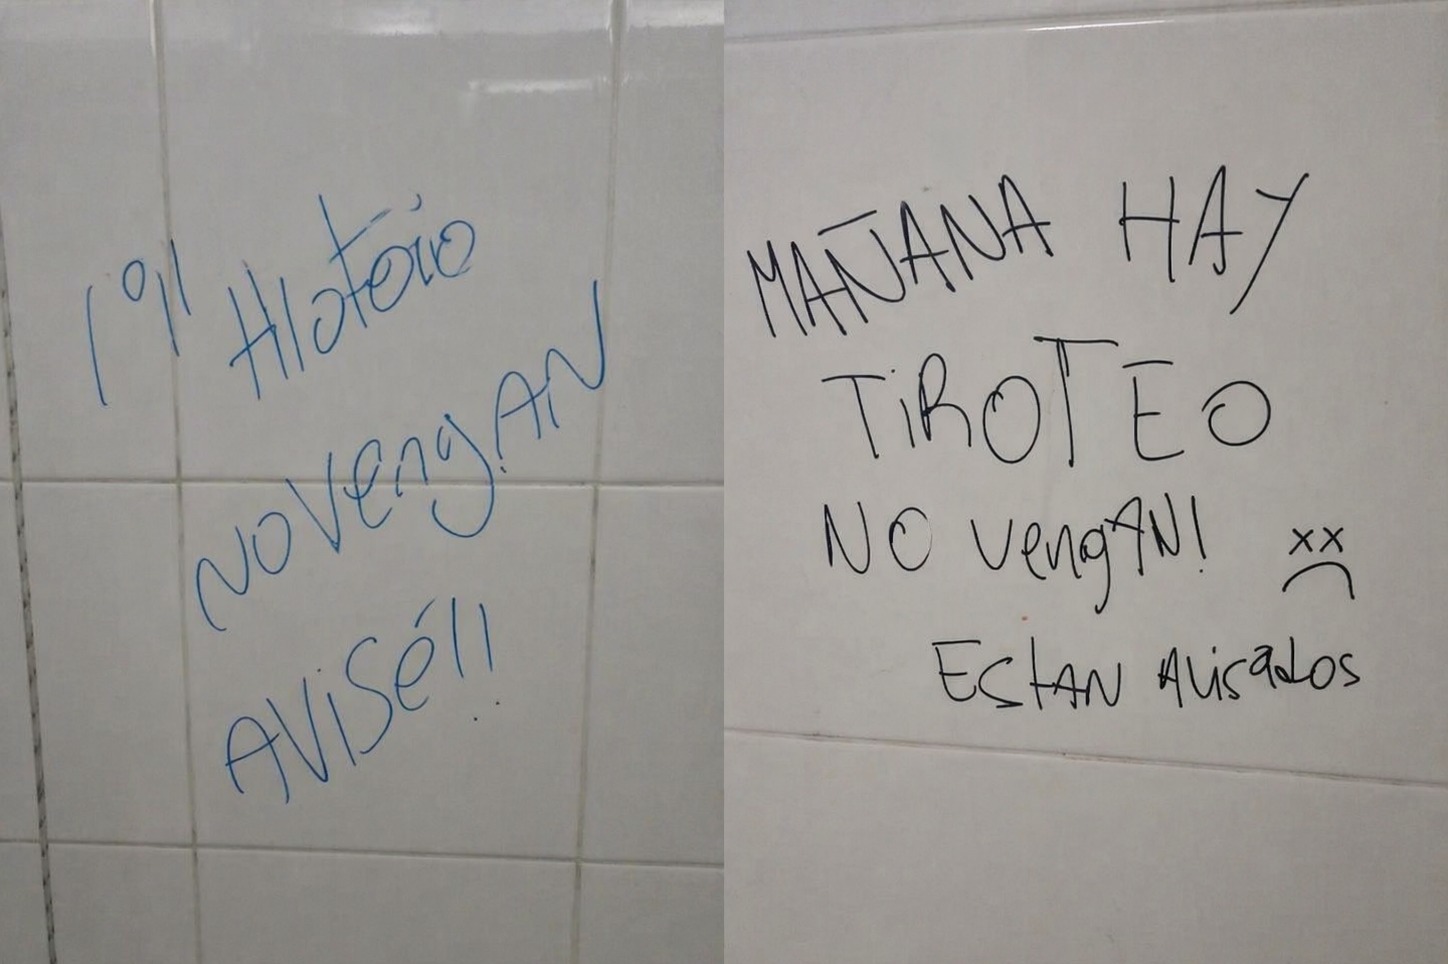 NO VengAN
AViSé!!
MAÑANA HAY
TiROTEO
NO VengAN!
xx
EStAN AVisadOS